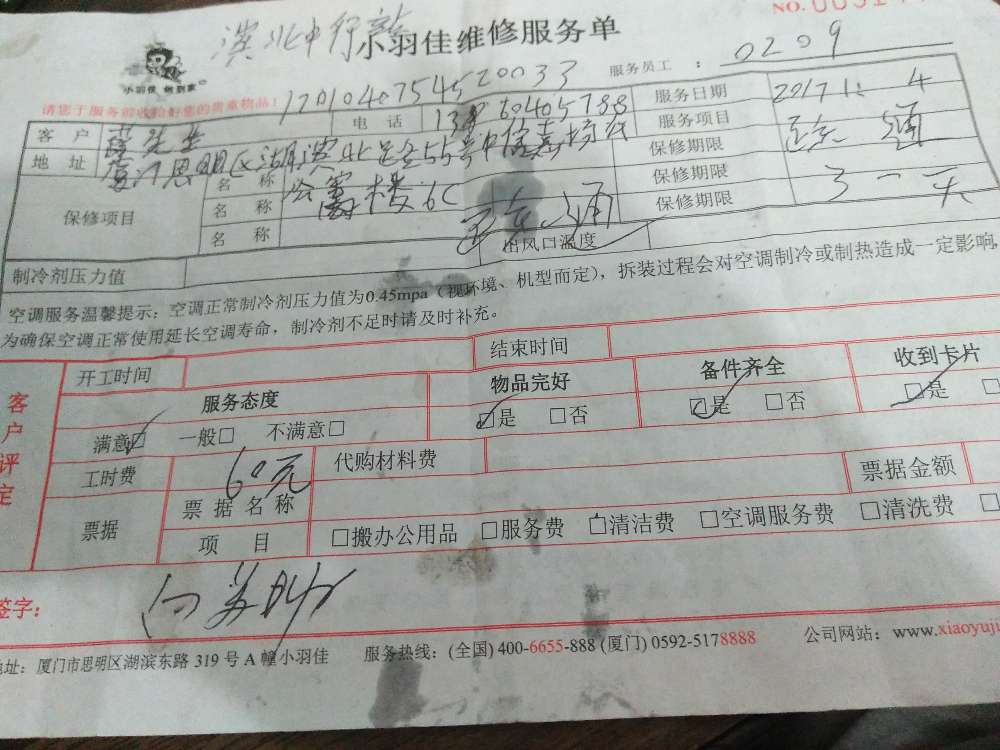 滨北中行 小羽佳维修服务单 NO.
小羽佳 做到家
服务员工 : 0209
请您于服务前收拾好您的贵重物品! 1201040754520033
客 户 先生 电 话 60405788 服务日期 2017 4
地 址 厦门思明区湖滨北 55号中信 服务项目 通
保修项目 名 称 楼6C 保修期限
名 称 保修期限 一天
名 称 通 保修期限
制冷剂压力值 出风口温度
空调服务温馨提示：空调正常制冷剂压力值为0.45mpa（视环境、机型而定），拆装过程会对空调制冷或制热造成一定影响，
为确保空调正常使用延长空调寿命，制冷剂不足时请及时补充。
客户评定
开工时间 结束时间
服务态度 物品完好 备件齐全 收到卡片
满意☑ 一般□ 不满意□ ☑是 □否 ☑是 □否 ☑是 □
工时费 60元 代购材料费
票据 票 据 名 称 票据金额
项 目 □搬办公用品 □服务费 □清洁费 □空调服务费 □清洗费 □
签字：
地址：厦门市思明区湖滨东路 319 号 A 幢小羽佳 服务热线：(全国) 400-6655-888 (厦门) 0592-5178888 公司网站：www.xiaoyuji